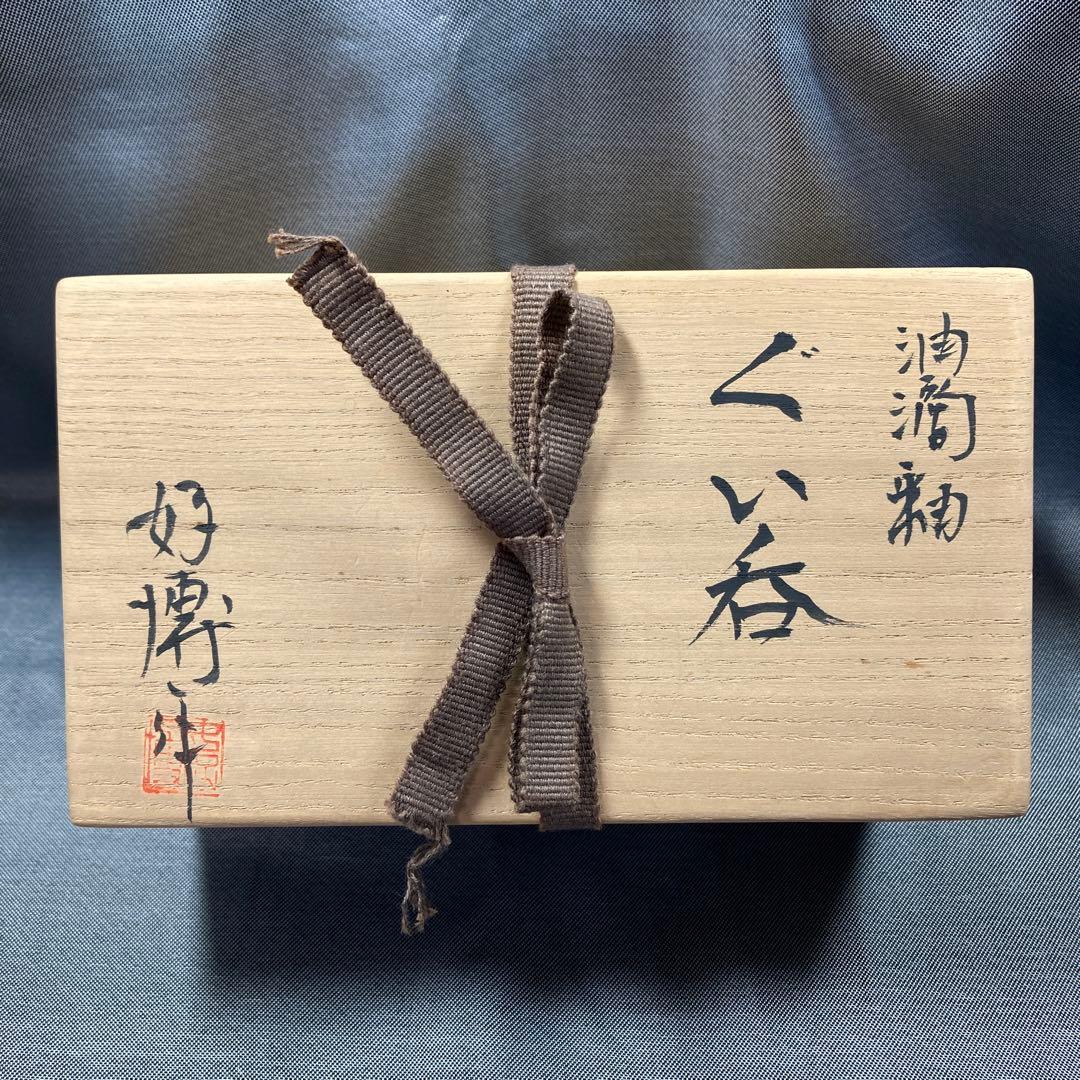 油滴釉
ぐい呑
好博作